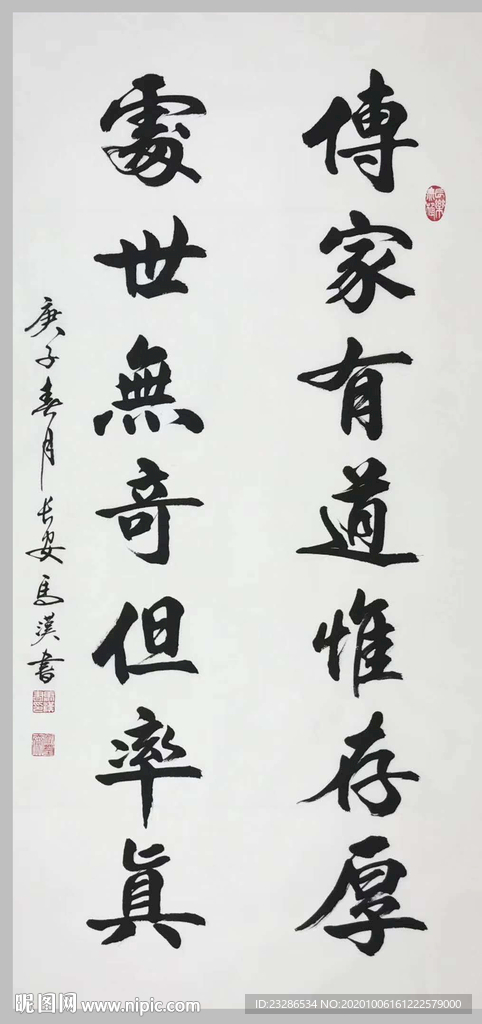 傳家有道惟存厚
處世無奇但率真
庚子春月长安馬漢書
昵图网 www.nipic.com
ID:23286534 NO:20201006161222579000